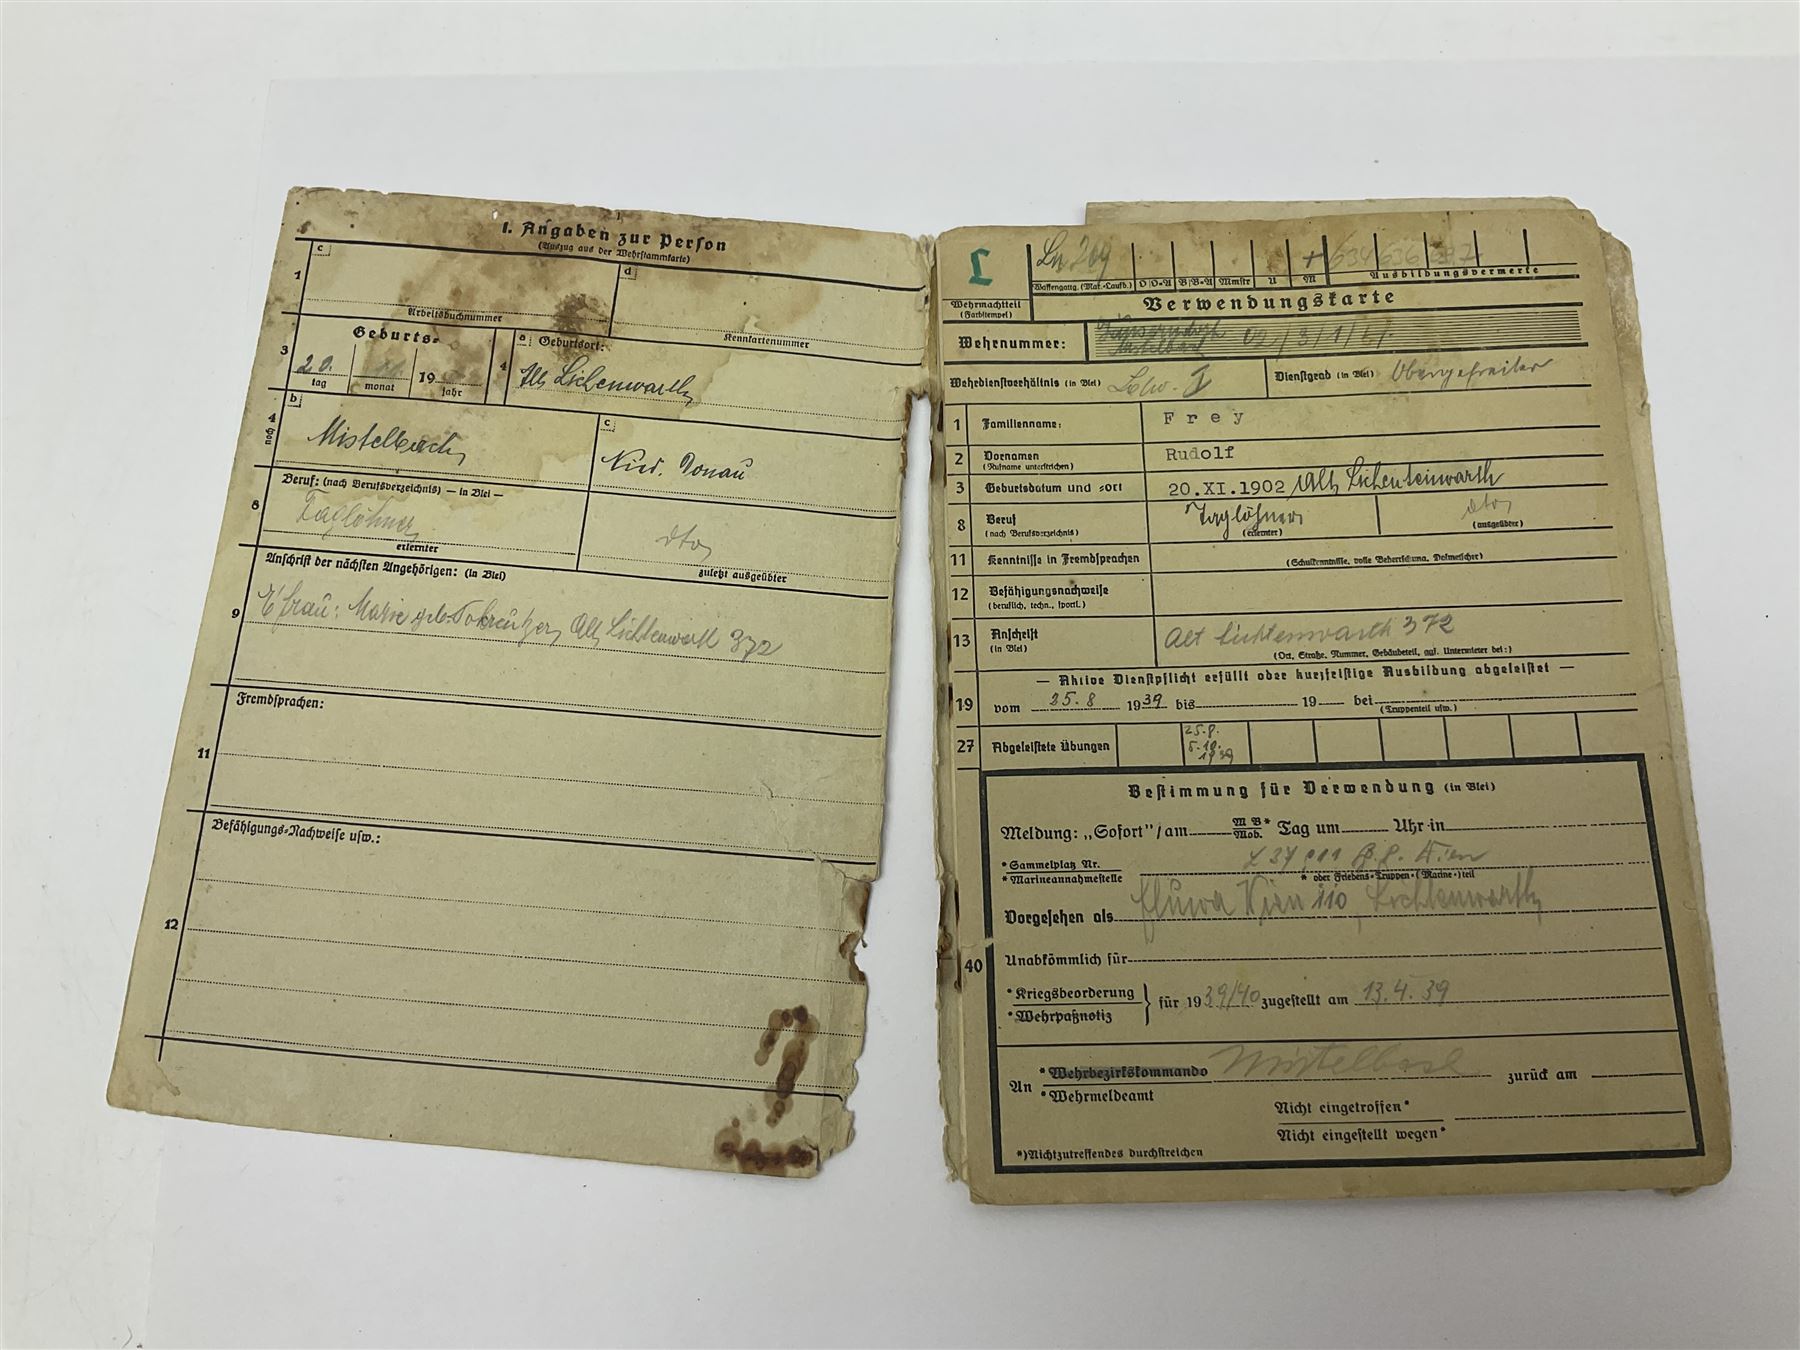 I. Angaben zur Person
(Auszug aus der Wehrstammkarte)
1
c
d
Arbeitsbuchnummer
Kennkartennummer
3
Geburts-
20. 11. 19
tag monat jahr
4
a Geburtsort:
Alt Lichenwarth
noch 4
b
Mistelbach
c
Nied. Donau
8
Beruf: (nach Berufsverzeichnis) — in Blei —
Taglöhner
erlernter
dto
zuletzt ausgeübter
9
Anschrift der nächsten Angehörigen: (in Blei)
E'frau: Marie geb. Alt Lichtenwarth 372
11
Fremdsprachen:
12
Befähigungs-Nachweise usw.:
L
Wehrmachtteil
(Farbstempel)
Ln 209
+ 634 636 637
Waffengattg. (Mar.-Laufb.) O O-A B B-A Wmstr U M Ausbildungsvermerke
Verwendungskarte
Wehrnummer:
Mistelbach
02/3/1/61
Wehrdienstverhältnis (in Blei) Ldw. I
Dienstgrad (in Blei) Obergefreiter
1 Familienname: Frey
2 Vornamen Rudolf
(Rufname unterstrichen)
3 Geburtsdatum und -ort 20.XI.1902 Alt Lichtenwarth
8 Beruf Taglöhner dto
(nach Berufsverzeichnis) (erlernter) (ausgeübter)
11 Kenntnisse in Fremdsprachen
(Schulkenntnisse, volle Beherrschung, Dolmetscher)
12 Befähigungsnachweise
(beruflich, techn., sportl.)
13 Anschrift Alt Lichtenwarth 372
(in Blei) (Ort, Straße, Nummer, Gebäudeteil, ggf. Untermieter bei:)
— Aktive Dienstpflicht erfüllt oder kurzfristige Ausbildung abgeleistet —
19 vom 25.8 1939 bis 19 bei
(Truppenteil usw.)
27 Abgeleistete Übungen
25.8.
5.10.
1939
40
Bestimmung für Verwendung (in Blei)
Meldung: „Sofort"/am M B* Mob. Tag um Uhr in
*Sammelplatz Nr.
*Marineannahmestelle
* oder Friedens-Truppen-(Marine-)teil
Vorgesehen als Fluwa Wien 110, Lichtenwarth
Unabkömmlich für
*Kriegsbeorderung
*Wehrpaßnotiz
für 1939/40 zugestellt am 13.4.39
An
*Wehrbezirkskommando
*Wehrmeldeamt
Mistelbach
zurück am
Nicht eingetroffen*
Nicht eingestellt wegen*
*) Nichtzutreffendes durchstreichen